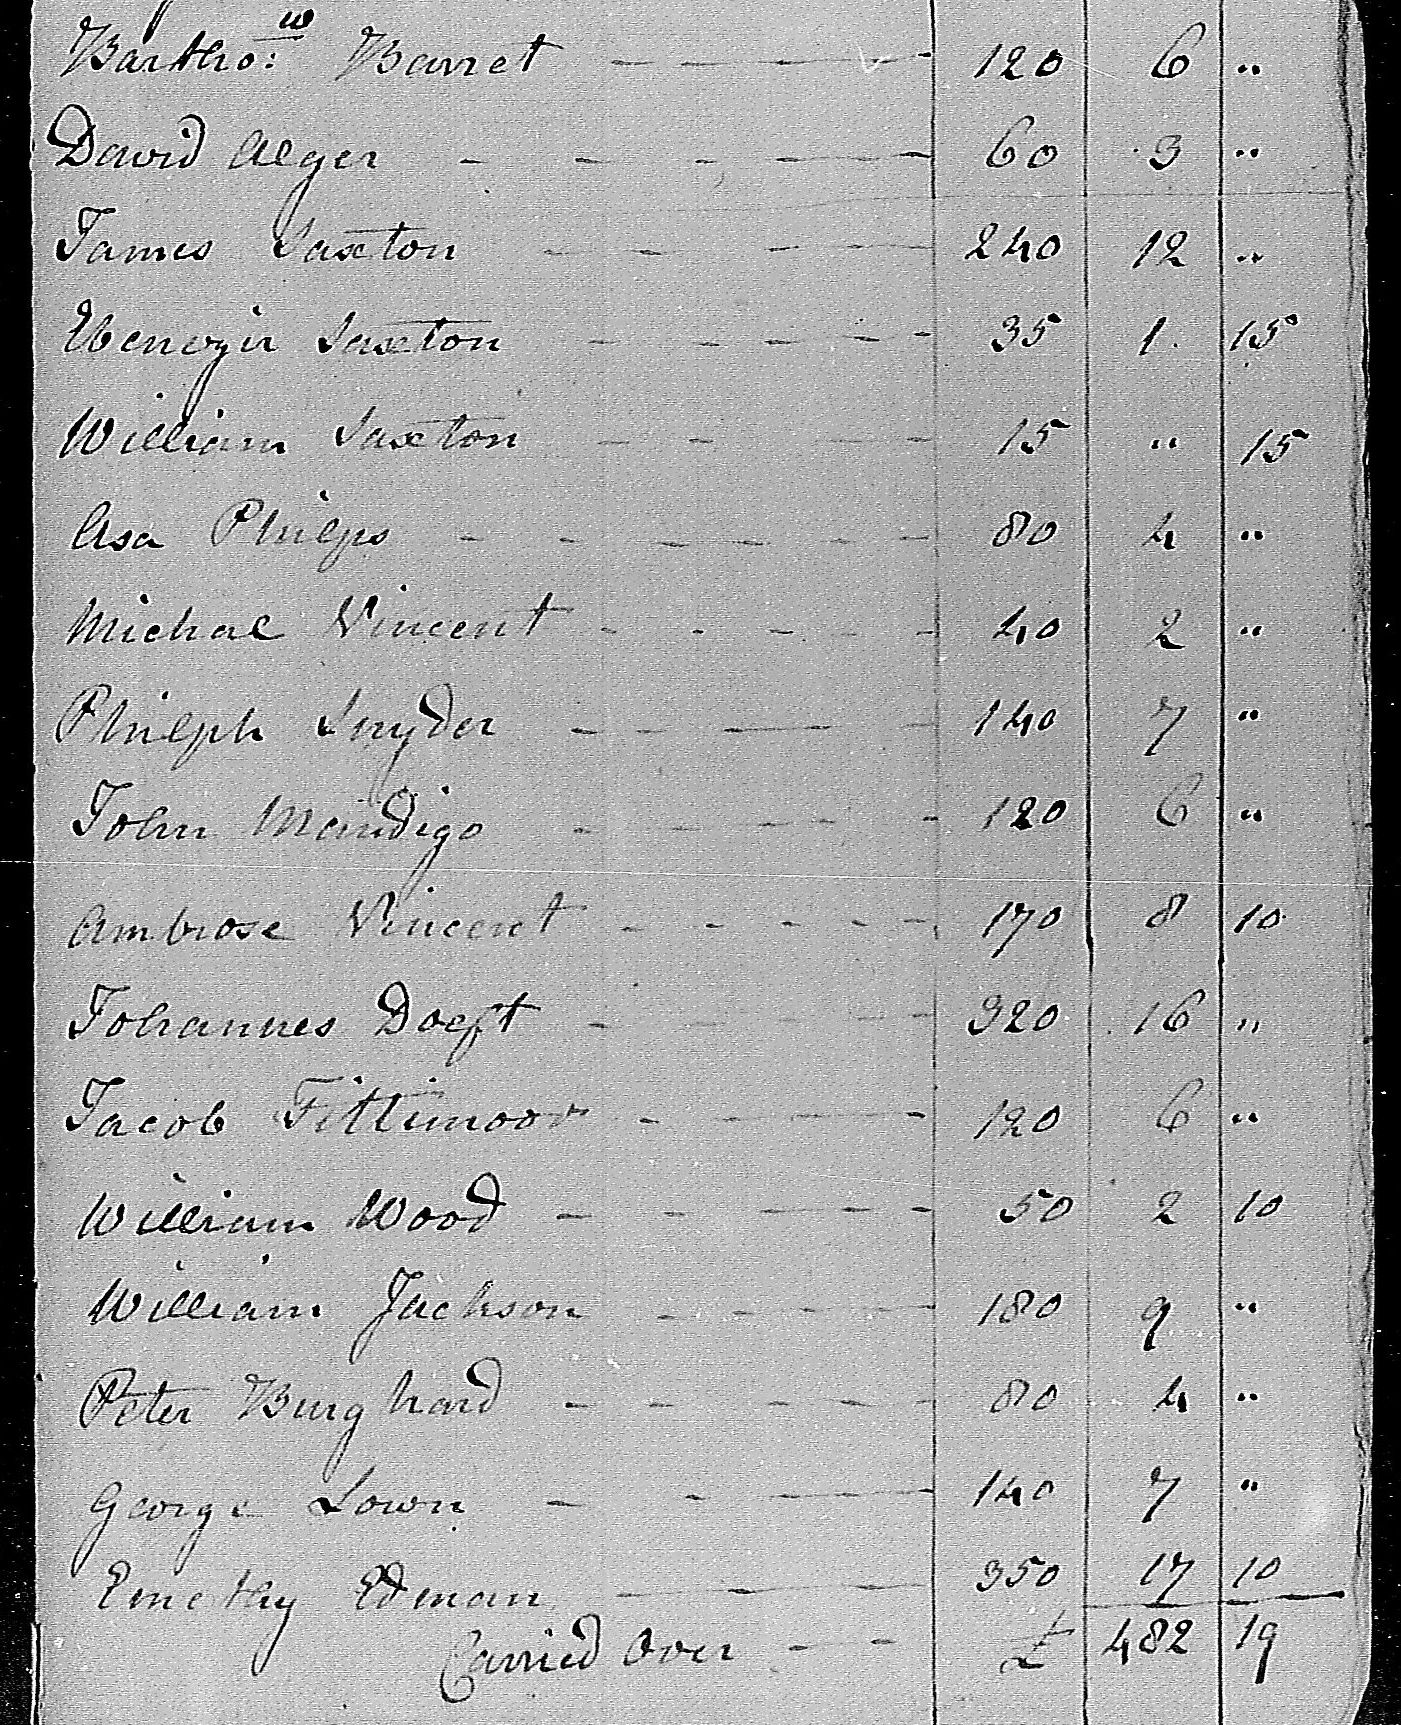 Bartho:w Barret - - - - 120 6 "
David Alger - - - - - 60 3 "
James Saxton - - - - 240 12 "
Ebenezir Saxton - - - - - 35 1 15
William Saxton - - - - 15 " 15
Asa Philps - - - - - - 80 4 "
Michal Vincent - - - - - 40 2 "
Philph Snyder - - - - - 140 7 "
John Mandigo - - - - - 120 6 "
Ambrose Vincent - - - - - 170 8 10
Johannes Doeft - - - - - 320 16 "
Jacob Fittimoor - - - - 120 6 "
William Wood - - - - - 50 2 10
William Jackson - - - - - 180 9 "
Peter Burghard - - - - - 80 4 "
George Lown - - - - - 140 7 "
Emethy Edman - - - - 350 17 10
Carried Over - - £ 482 19